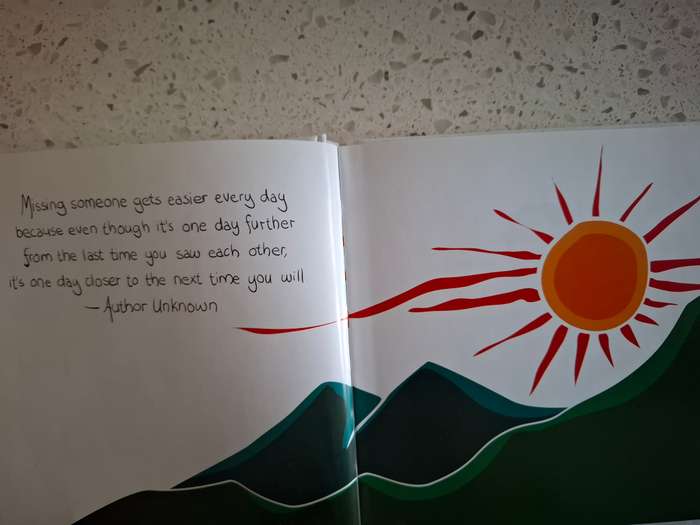 Missing someone gets easier every day
because even though it's one day further
from the last time you saw each other,
it's one day closer to the next time you will
— Author Unknown